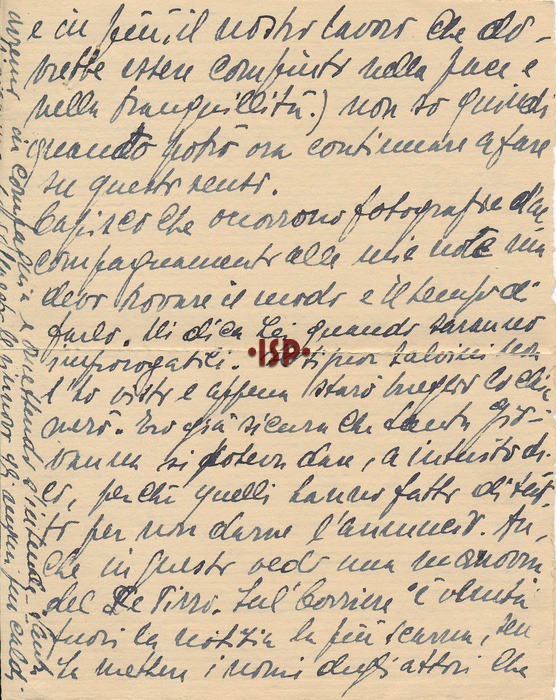 e in più, il nostro lavoro che do-
vrebbe essere compiuto nella pace e
nella tranquillità.) non so quindi
quando potrò ora continuare a fare
su questo senso.
Capisco che occorrono fotografie d'ac
compagnamento alle mie note ma
devo trovare il modo e il tempo di
farlo. Mi dica Lei quando saranno
improrogabili. Salvini non
l'ho visto e appena starò meglio lo chia
merò. Ero già sicura che Santa Gio-
vanna si poteva dare, a intuito di-
co, perché quelli hanno fatto di tut-
to per non darne l'annuncio. An-
che in questo vedo una manovra
del De Pirro. Sul "Corriere" è venuta
fuori la notizia la più scarna, sen
za mettere i nomi degli attori che
•ISP•
in compagnia e
rinnovo gli auguri più caldi.